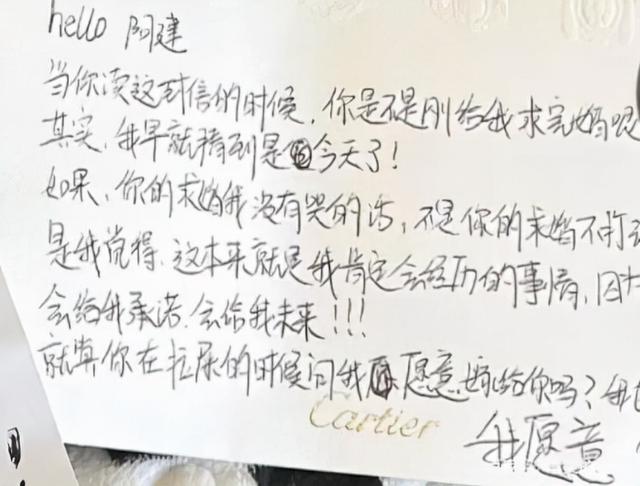 hello 阿建
当你读这封信的时候,你是不是刚给我求完婚呢
其实,我早就猜到是今天了!
如果、你的求婚我没有哭的话,不是你的求婚不打动
是我觉得、这本来就是我肯定会经历的事情,因为
会给我承诺、会给我未来!!!
就算你在拉尿的时候问我愿意嫁给你吗?我
Cartier
我愿意